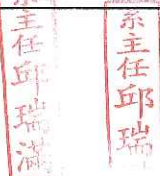 系主任邱瑞滿
系主任邱瑞